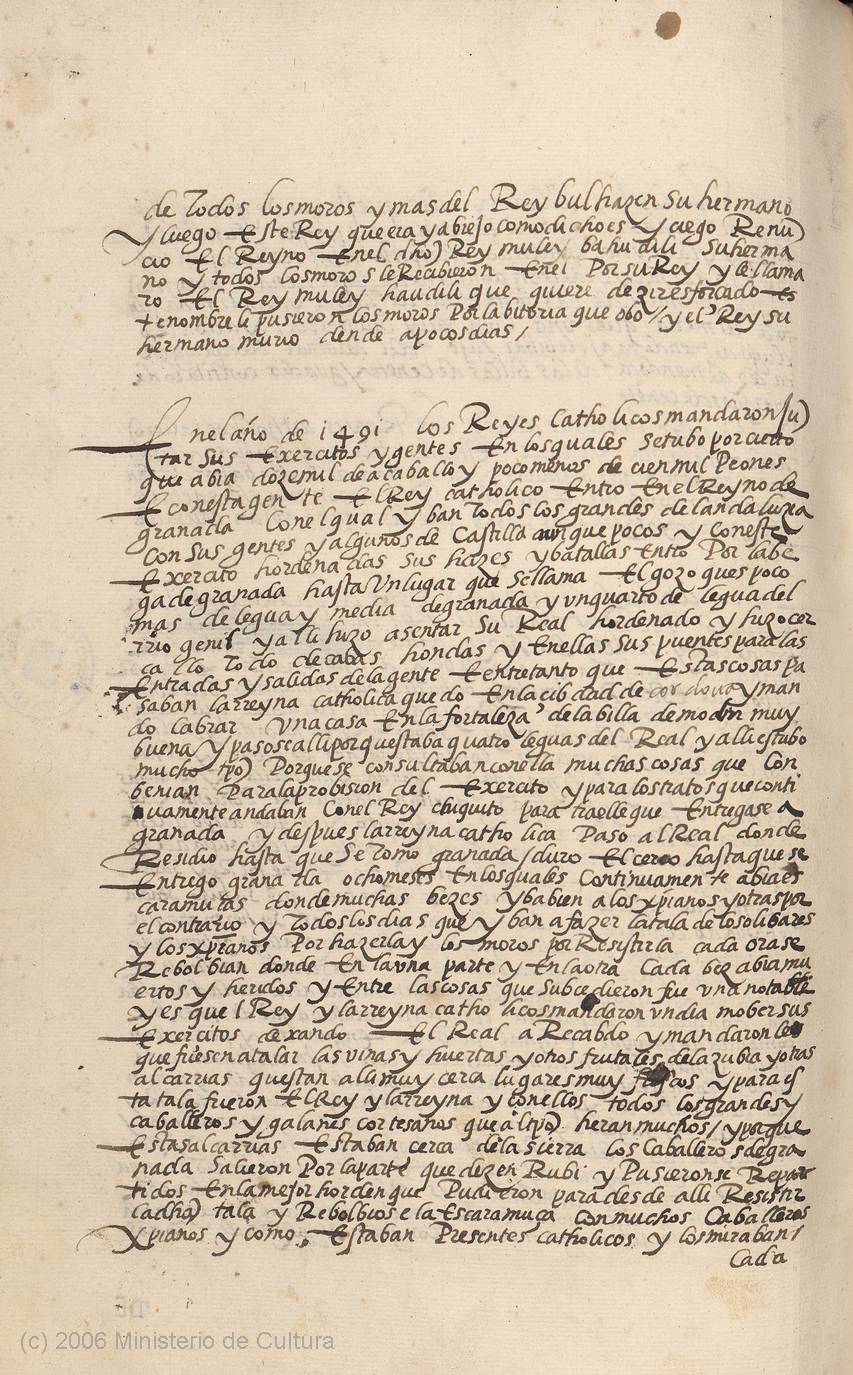 de Todos los moros y mas del Rey bulhazen su hermano
y luego Este Rey que era ya biejo como dicho es y ciego Renũ
cio El Reyno En el dho) Rey muley bahudili su herma
no y todos los moros le Recibieron En el Por su Rey y le llama
ro El Rey muley haudili que quiere dezir esforcado Es
te nombre le pusieron los moros Por la bitoria que obo / y el Rey su
hermano murio dende a pocos dias /
En el año de 1491 los Reyes Catholicos mandaron Ju)
tar sus Exercitos y gentes En los quales se tubo por cierto
que abia doze mil de a caballo y poco menos de cien mil Peones
E con esta gente El Rey catholico Entro En el Reyno de
granada con el qual yban Todos los grandes de landaluzia
con sus gentes y algunos de Castilla aunque pocos y con este
Exercito hordenadas sus hazes y batallas Entro Por la be
ga de granada hasta Un lugar que se llama El gozo ques poco
mas de legua y media de granada y un quarto de legua del
rrio genil y alli hizo asentar su Real hordenado y hizo cer
ca lo Todo de cabas hondas y En ellas sus puentes para las
Entradas y salidas de la gente E entretanto que Estas cosas pa
saban la rreyna catholica quedo En la cibdad de cordova y man
do labrar una casa En la fortaleza de la billa de moclin muy
buena y pasose alli porquestaba quatro leguas del Real y alli estubo
mucho tpo) Porque se consultaban con ella muchas cosas que Con
benian Para la probision del Exercito y para los tratos que conti
nuamente andaban Con el Rey chiquito para traelle que Entregase a
granada y despues la rreyna catholica Paso al Real donde
Residio hasta que se Tomo granada / duro El cerco hasta que se
Entrego granada ocho meses En los quales Continuamente abia es
caramuças donde muchas bezes yba bien a los xpianos y otras por
el contrario y Todos los dias que yban a fazer la tala de los olibares
y los xpianos Por hazerla y los moros por Resistirla cada ora se
Rebolbian donde En la una parte y En la otra Cada bez abia mu
ertos y heridos y Entre las cosas que subcedieron fue una notable
y es que l Rey y la rreyna catholicos mandaron un dia mober sus
Exercitos dexando El Real a Recabdo y mandaron les
que fuesen a talar las viñas y huertas y otros frutales de la zubia y otras
alcarrias questan alli muy cerca lugares muy frescos y para es
ta tala fueron El Rey y la rreyna y con ellos todos los grandes y
caballeros y galanes cortesanos que al tpo) heran muchos / y porque
Estas alcarrias Estaban cerca de la sierra los Caballeros de gra
nada salieron Por la parte que dezen Rubi y Pusieronse Repar
tidos En la mejor horden que Pudieron para desde alli Resistir
la dha) tala y Rebolbiose la Escaramuça con muchos Caballeros
xpianos y como Estaban Presentes catholicos y los miraban /
Cada
(c) 2006 Ministerio de Cultura